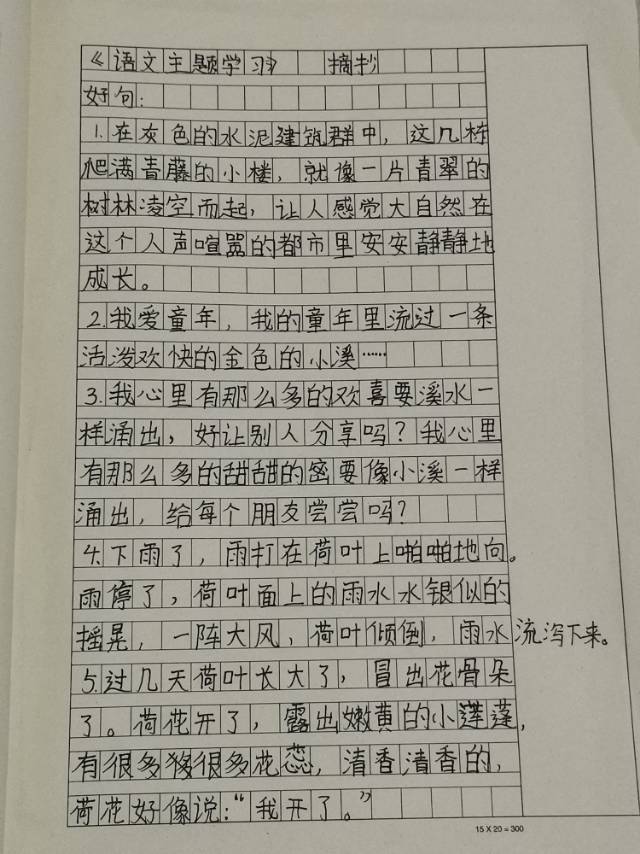 《语文主题学习》 摘抄
好句：
1.在灰色的水泥建筑群中，这几栋
爬满青藤的小楼，就像一片青翠的
树林凌空而起，让人感觉大自然在
这个人声喧嚣的都市里安安静静地
成长。
2.我爱童年，我的童年里流过一条
活泼欢快的金色的小溪……
3.我心里有那么多的欢喜要溪水一
样涌出，好让别人分享吗？我心里
有那么多的甜甜的密要像小溪一样
涌出，给每个朋友尝尝吗？
4.下雨了，雨打在荷叶上啪啪地向。
雨停了，荷叶面上的雨水水银似的
摇晃，一阵大风，荷叶倾倒，雨水流泻下来。
5.过几天荷叶长大了，冒出花骨朵
了。荷花开了，露出嫩黄的小莲蓬，
有很多很多花蕊，清香清香的，
荷花好像说：“我开了。”
15 X 20 = 300